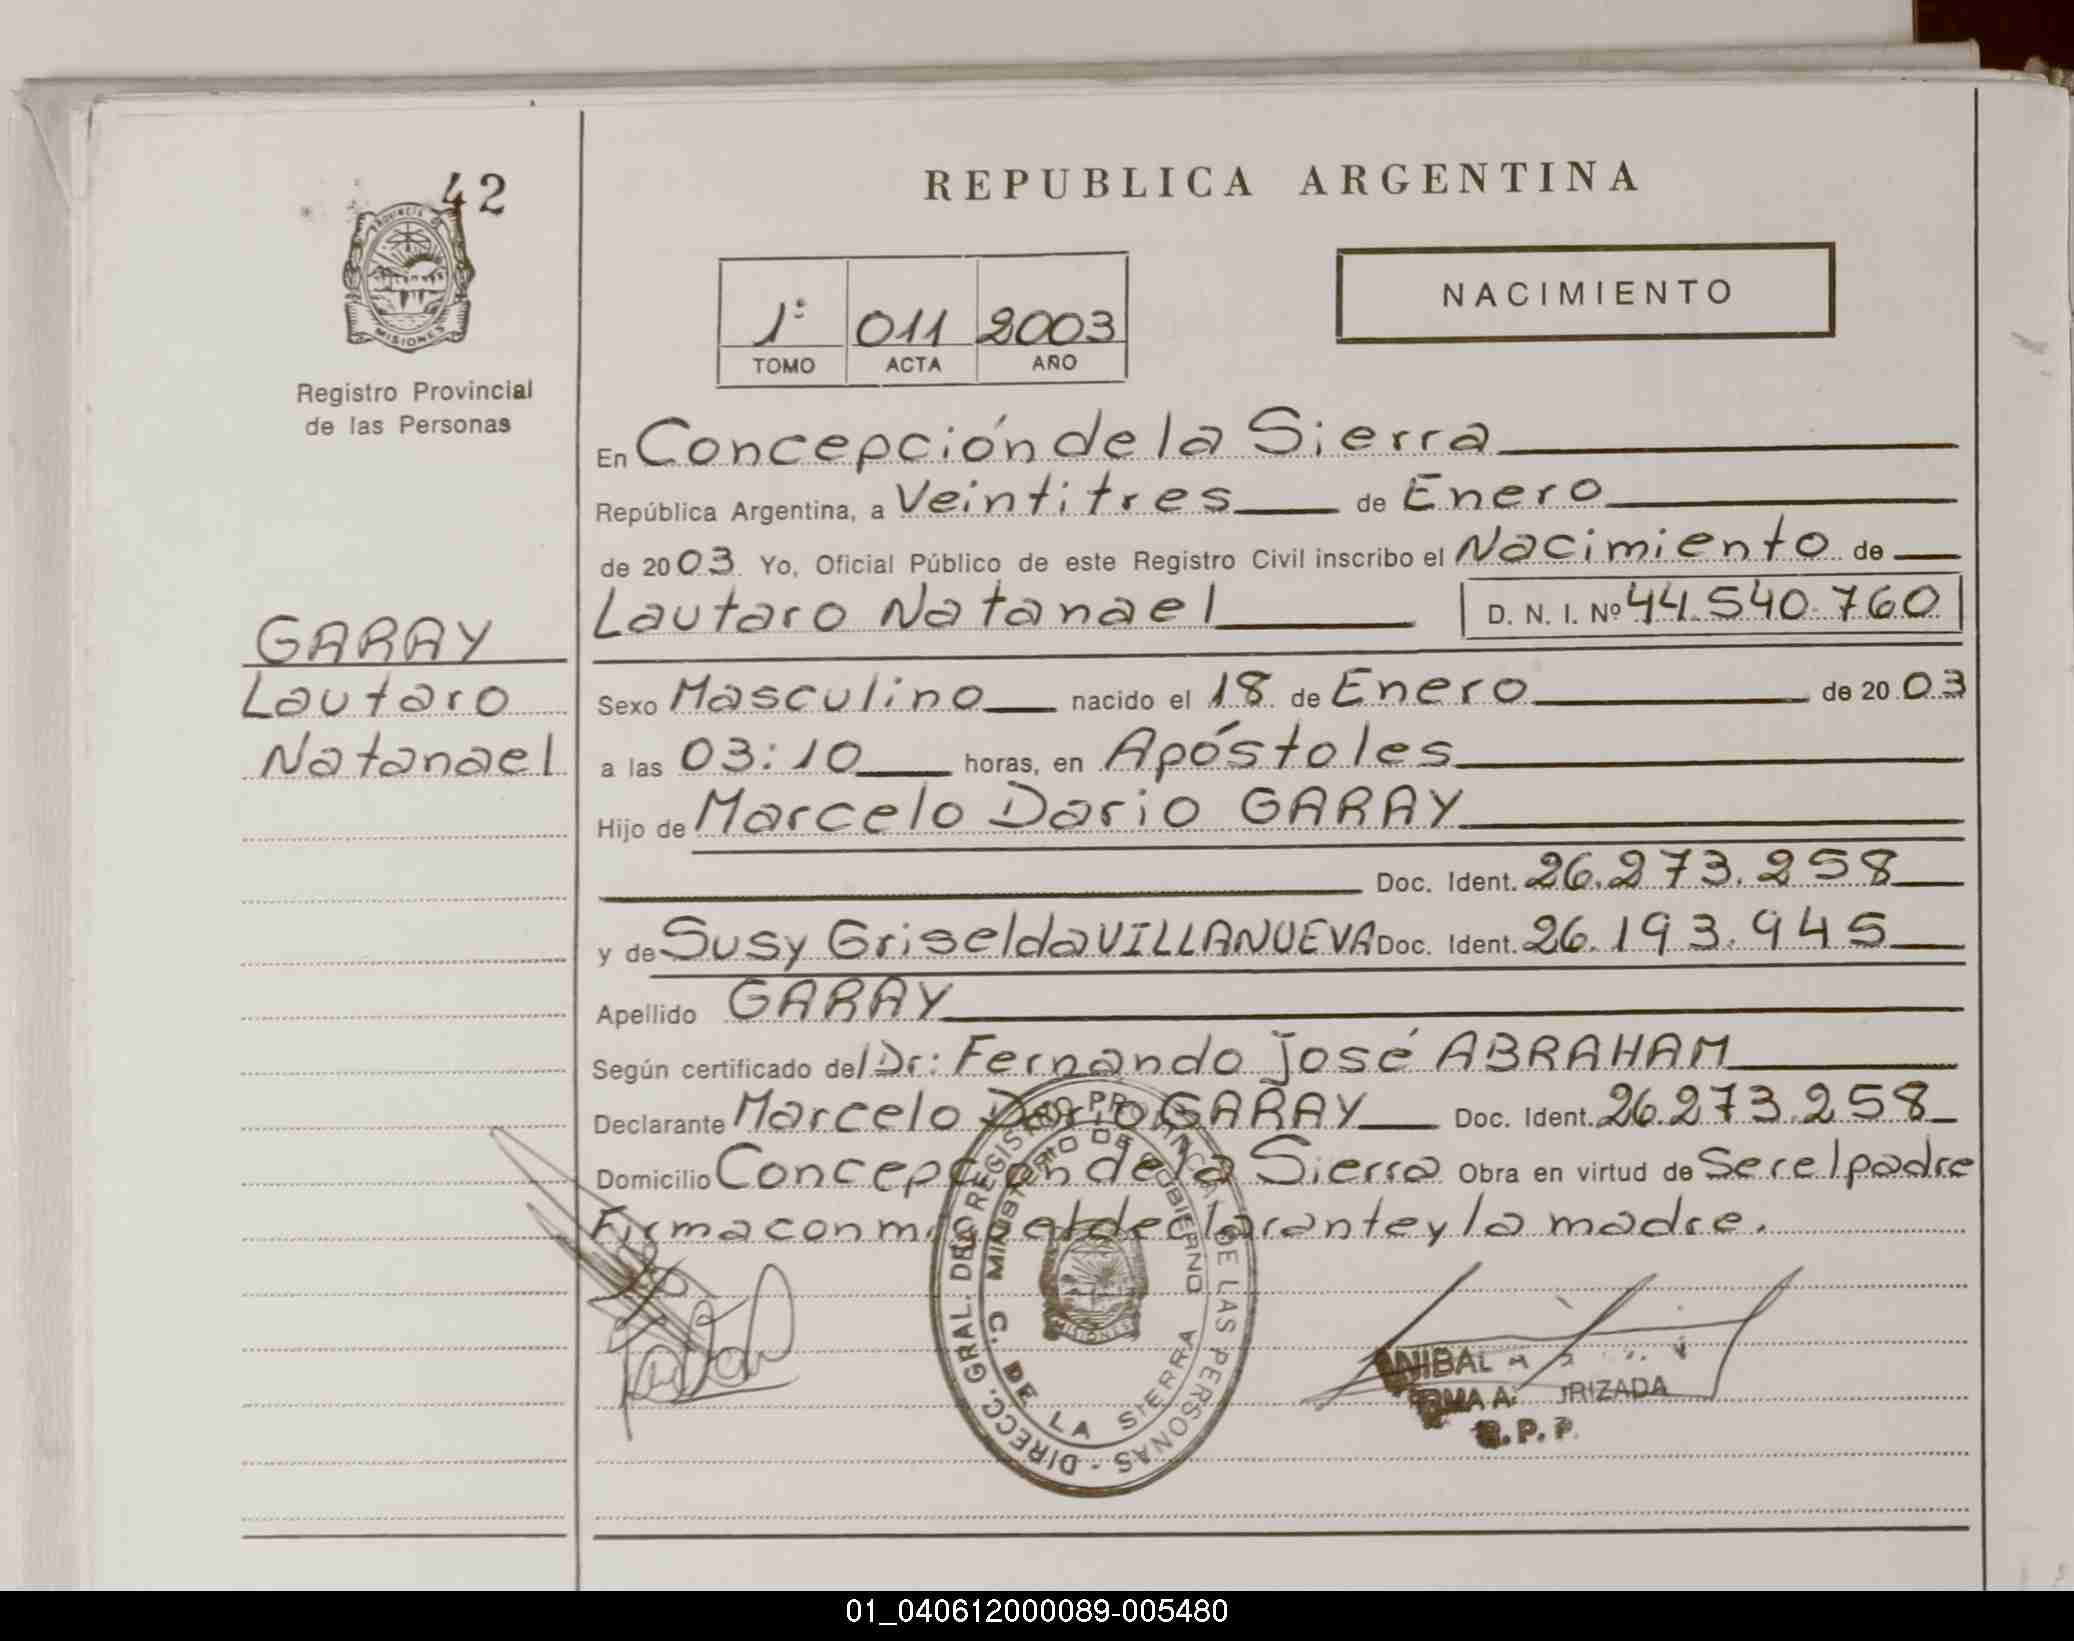 42
PROVINCIA DE
MISIONES
Registro Provincial
de las Personas
GARAY
Lautaro
Natanael
REPUBLICA ARGENTINA
1º 011 2003
TOMO ACTA AÑO
NACIMIENTO
En Concepción de la Sierra
República Argentina, a Veintitres de Enero
de 2003. Yo, Oficial Público de este Registro Civil inscribo el Nacimiento de
Lautaro Natanael D. N. I. Nº 44.540.760
Sexo Masculino nacido el 18 de Enero de 2003
a las 03:10 horas, en Apóstoles
Hijo de Marcelo Dario GARAY
Doc. Ident. 26.273.258
y de Susy Griselda VILLANUEVA Doc. Ident. 26.193.945
Apellido GARAY
Según certificado del Dr: Fernando José ABRAHAM
Declarante Marcelo Dario GARAY Doc. Ident. 26.273.258
Domicilio Concepcion de la Sierra Obra en virtud de Ser el padre
Firma con migo el declarante y la madre.
DIRECC. GRAL. DEL REGISTRO PROVINCIAL DE LAS PERSONAS -
MINISTERIO DE GOBIERNO
C. DE LA SIERRA
MISIONES
ANIBAL
R.P.P.
01_040612000089-005480